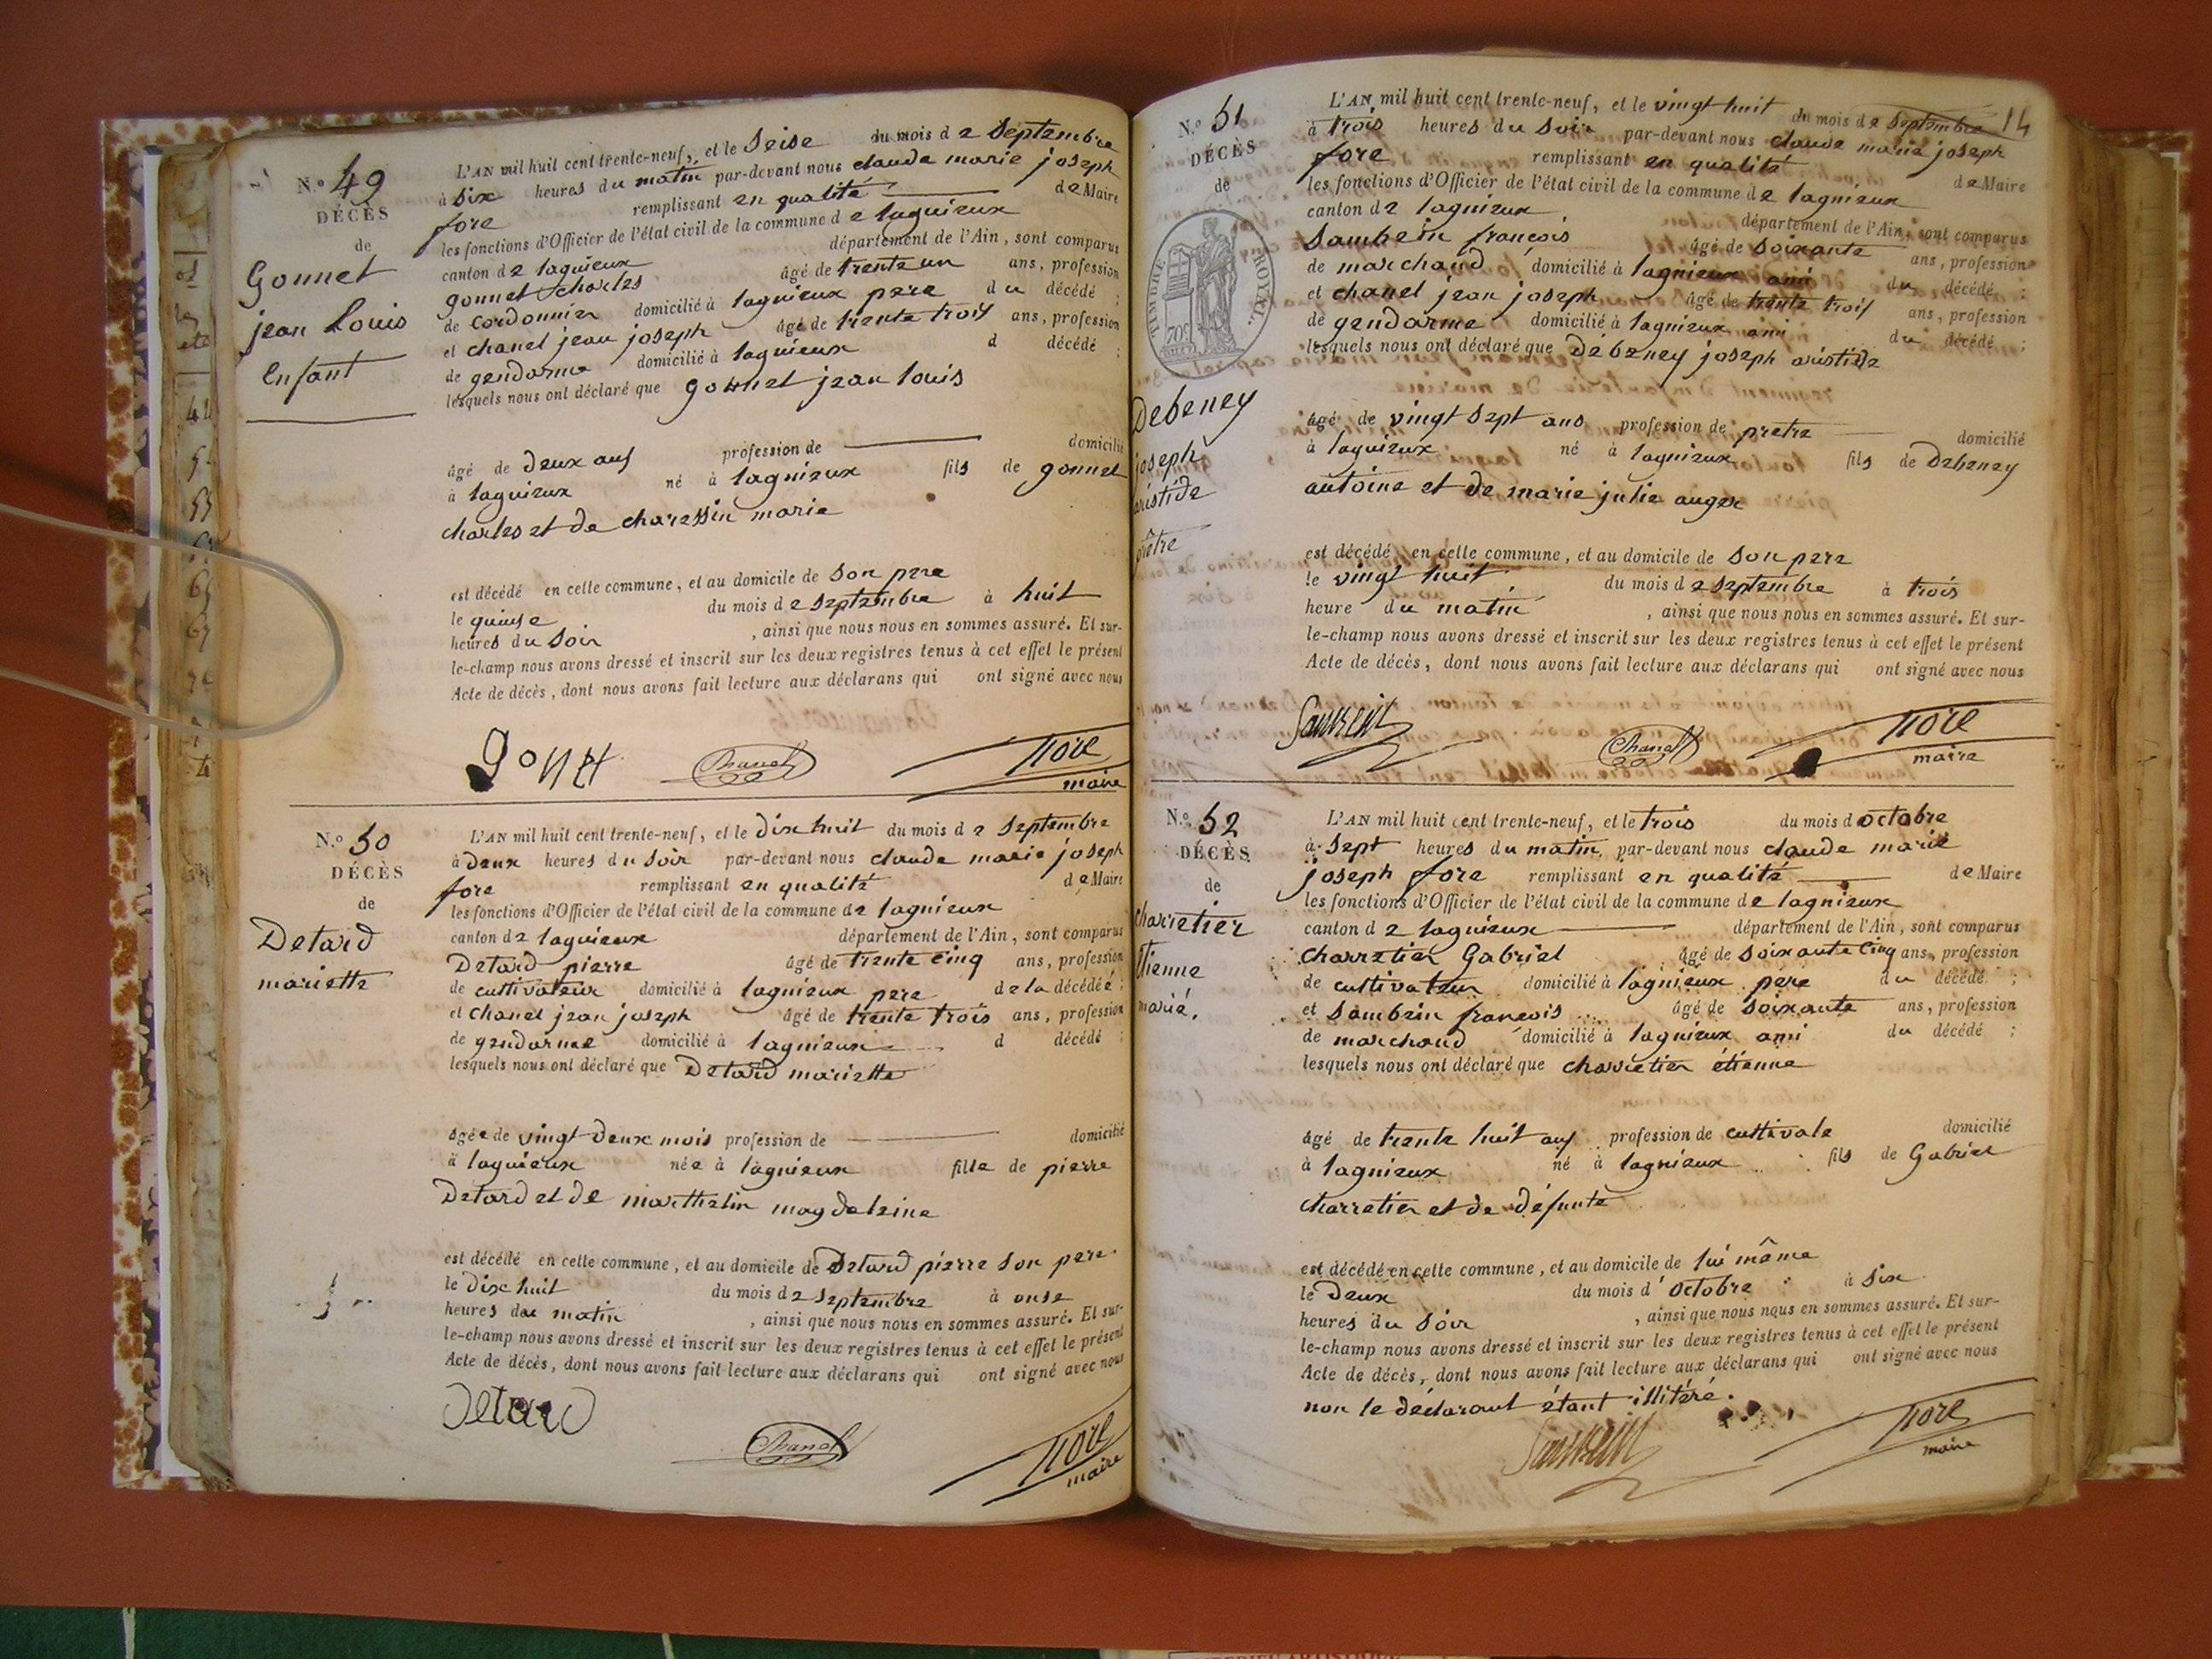 N.º 49
DÉCÈS
de
Gonnet
jean Louis
Enfant
L'AN mil huit cent trente-neuf, et le Seise du mois de Septembre
à Six heures du matin par-devant nous claude marie joseph
fore remplissant en qualité de Maire
les fonctions d'Officier de l'état civil de la commune de lagnieux
canton de lagnieux département de l'Ain, sont comparus
gonnet charles âgé de trente un ans, profession
de Cordonnier domicilié à lagnieux pere du décédé ;
et chanel jean joseph âgé de trente trois ans, profession
de gendarme domicilié à lagnieux d décédé ;
lesquels nous ont déclaré que gonnet jean louis
âgé de deux ans profession de domicilié
à lagnieux né à lagnieux fils de gonnet
charles et de charessin marie
est décédé en cette commune, et au domicile de Son pere
le quinse du mois de Septembre à huit
heures du Soir , ainsi que nous nous en sommes assuré. Et sur-
le-champ nous avons dressé et inscrit sur les deux registres tenus à cet effet le présent
Acte de décès, dont nous avons fait lecture aux déclarans qui ont signé avec nous
gonet Chanel fore
maire
N.º 50
DÉCÈS
de
Detard
mariette
L'AN mil huit cent trente-neuf, et le dix huit du mois de Septembre
à deux heures du Soir par-devant nous claude marie joseph
fore remplissant en qualité de Maire
les fonctions d'Officier de l'état civil de la commune de lagnieux
canton de lagnieux département de l'Ain, sont comparus
Detard pierre âgé de trente cinq ans, profession
de cultivateur domicilié à lagnieux pere de la décédée ;
et chanel jean joseph âgé de trente trois ans, profession
de gendarme domicilié à lagnieux d décédé ;
lesquels nous ont déclaré que Detard mariette
agée de vingt deux mois profession de domicilié
à lagnieux née à lagnieux fille de pierre
Detard et de marthelin magdeleine
est décédé en cette commune, et au domicile de Detard pierre Son pere
le dix huit du mois de Septembre à onse
heures du matin , ainsi que nous nous en sommes assuré. Et sur-
le-champ nous avons dressé et inscrit sur les deux registres tenus à cet effet le présent
Acte de décès, dont nous avons fait lecture aux déclarans qui ont signé avec nous
Detard
Chanel fore
maire
14
N.º 51
DÉCÈS
de
TIMBRE ROYAL
70c
Debeney
joseph
aristide
prêtre
L'AN mil huit cent trente-neuf, et le vingt huit du mois de Septembre
à trois heures du Soir par-devant nous claude marie joseph
fore remplissant en qualité de Maire
les fonctions d'Officier de l'état civil de la commune de lagnieux
canton de lagnieux département de l'Ain, sont comparus
Sambein francois âgé de Soixante ans, profession
de marchand domicilié à lagnieux ami du décédé ;
et chanel jean joseph âgé de trente trois ans, profession
de gendarme domicilié à lagnieux ami du décédé ;
lesquels nous ont déclaré que débeney joseph aristide
âgé de vingt Sept ans profession de pretre domicilié
à lagnieux né à lagnieux fils de Debeney
antoine et de marie julie auger
est décédé en cette commune, et au domicile de Son pere
le vingt huit du mois de Septembre à trois
heure du matin , ainsi que nous nous en sommes assuré. Et sur-
le-champ nous avons dressé et inscrit sur les deux registres tenus à cet effet le présent
Acte de décès, dont nous avons fait lecture aux déclarans qui ont signé avec nous
Sambein Chanel fore
maire
N.º 52
DÉCÈS
de
charretier
Etienne
marié.
L'AN mil huit cent trente-neuf, et le trois du mois d octobre
à Sept heures du matin par-devant nous claude marie
joseph fore remplissant en qualité de Maire
les fonctions d'Officier de l'état civil de la commune de lagnieux
canton de lagnieux département de l'Ain, sont comparus
charretier Gabriel âgé de Soixante Cinq ans, profession
de cultivateur domicilié à lagnieux pere du décédé ;
et Sambein francois âgé de Soixante ans, profession
de marchand domicilié à lagnieux ami du décédé ;
lesquels nous ont déclaré que charretier étienne
âgé de trente huit ans profession de cultivale domicilié
à lagnieux né à lagnieux fils de Gabriel
charretier et de défunte
est décédé en cette commune, et au domicile de lui même
le Deux du mois d'octobre à Six
heures du Soir , ainsi que nous nous en sommes assuré. Et sur-
le-champ nous avons dressé et inscrit sur les deux registres tenus à cet effet le présent
Acte de décès, dont nous avons fait lecture aux déclarans qui ont signé avec nous
non le déclarant étant illitéré.
Sambein fore
maire